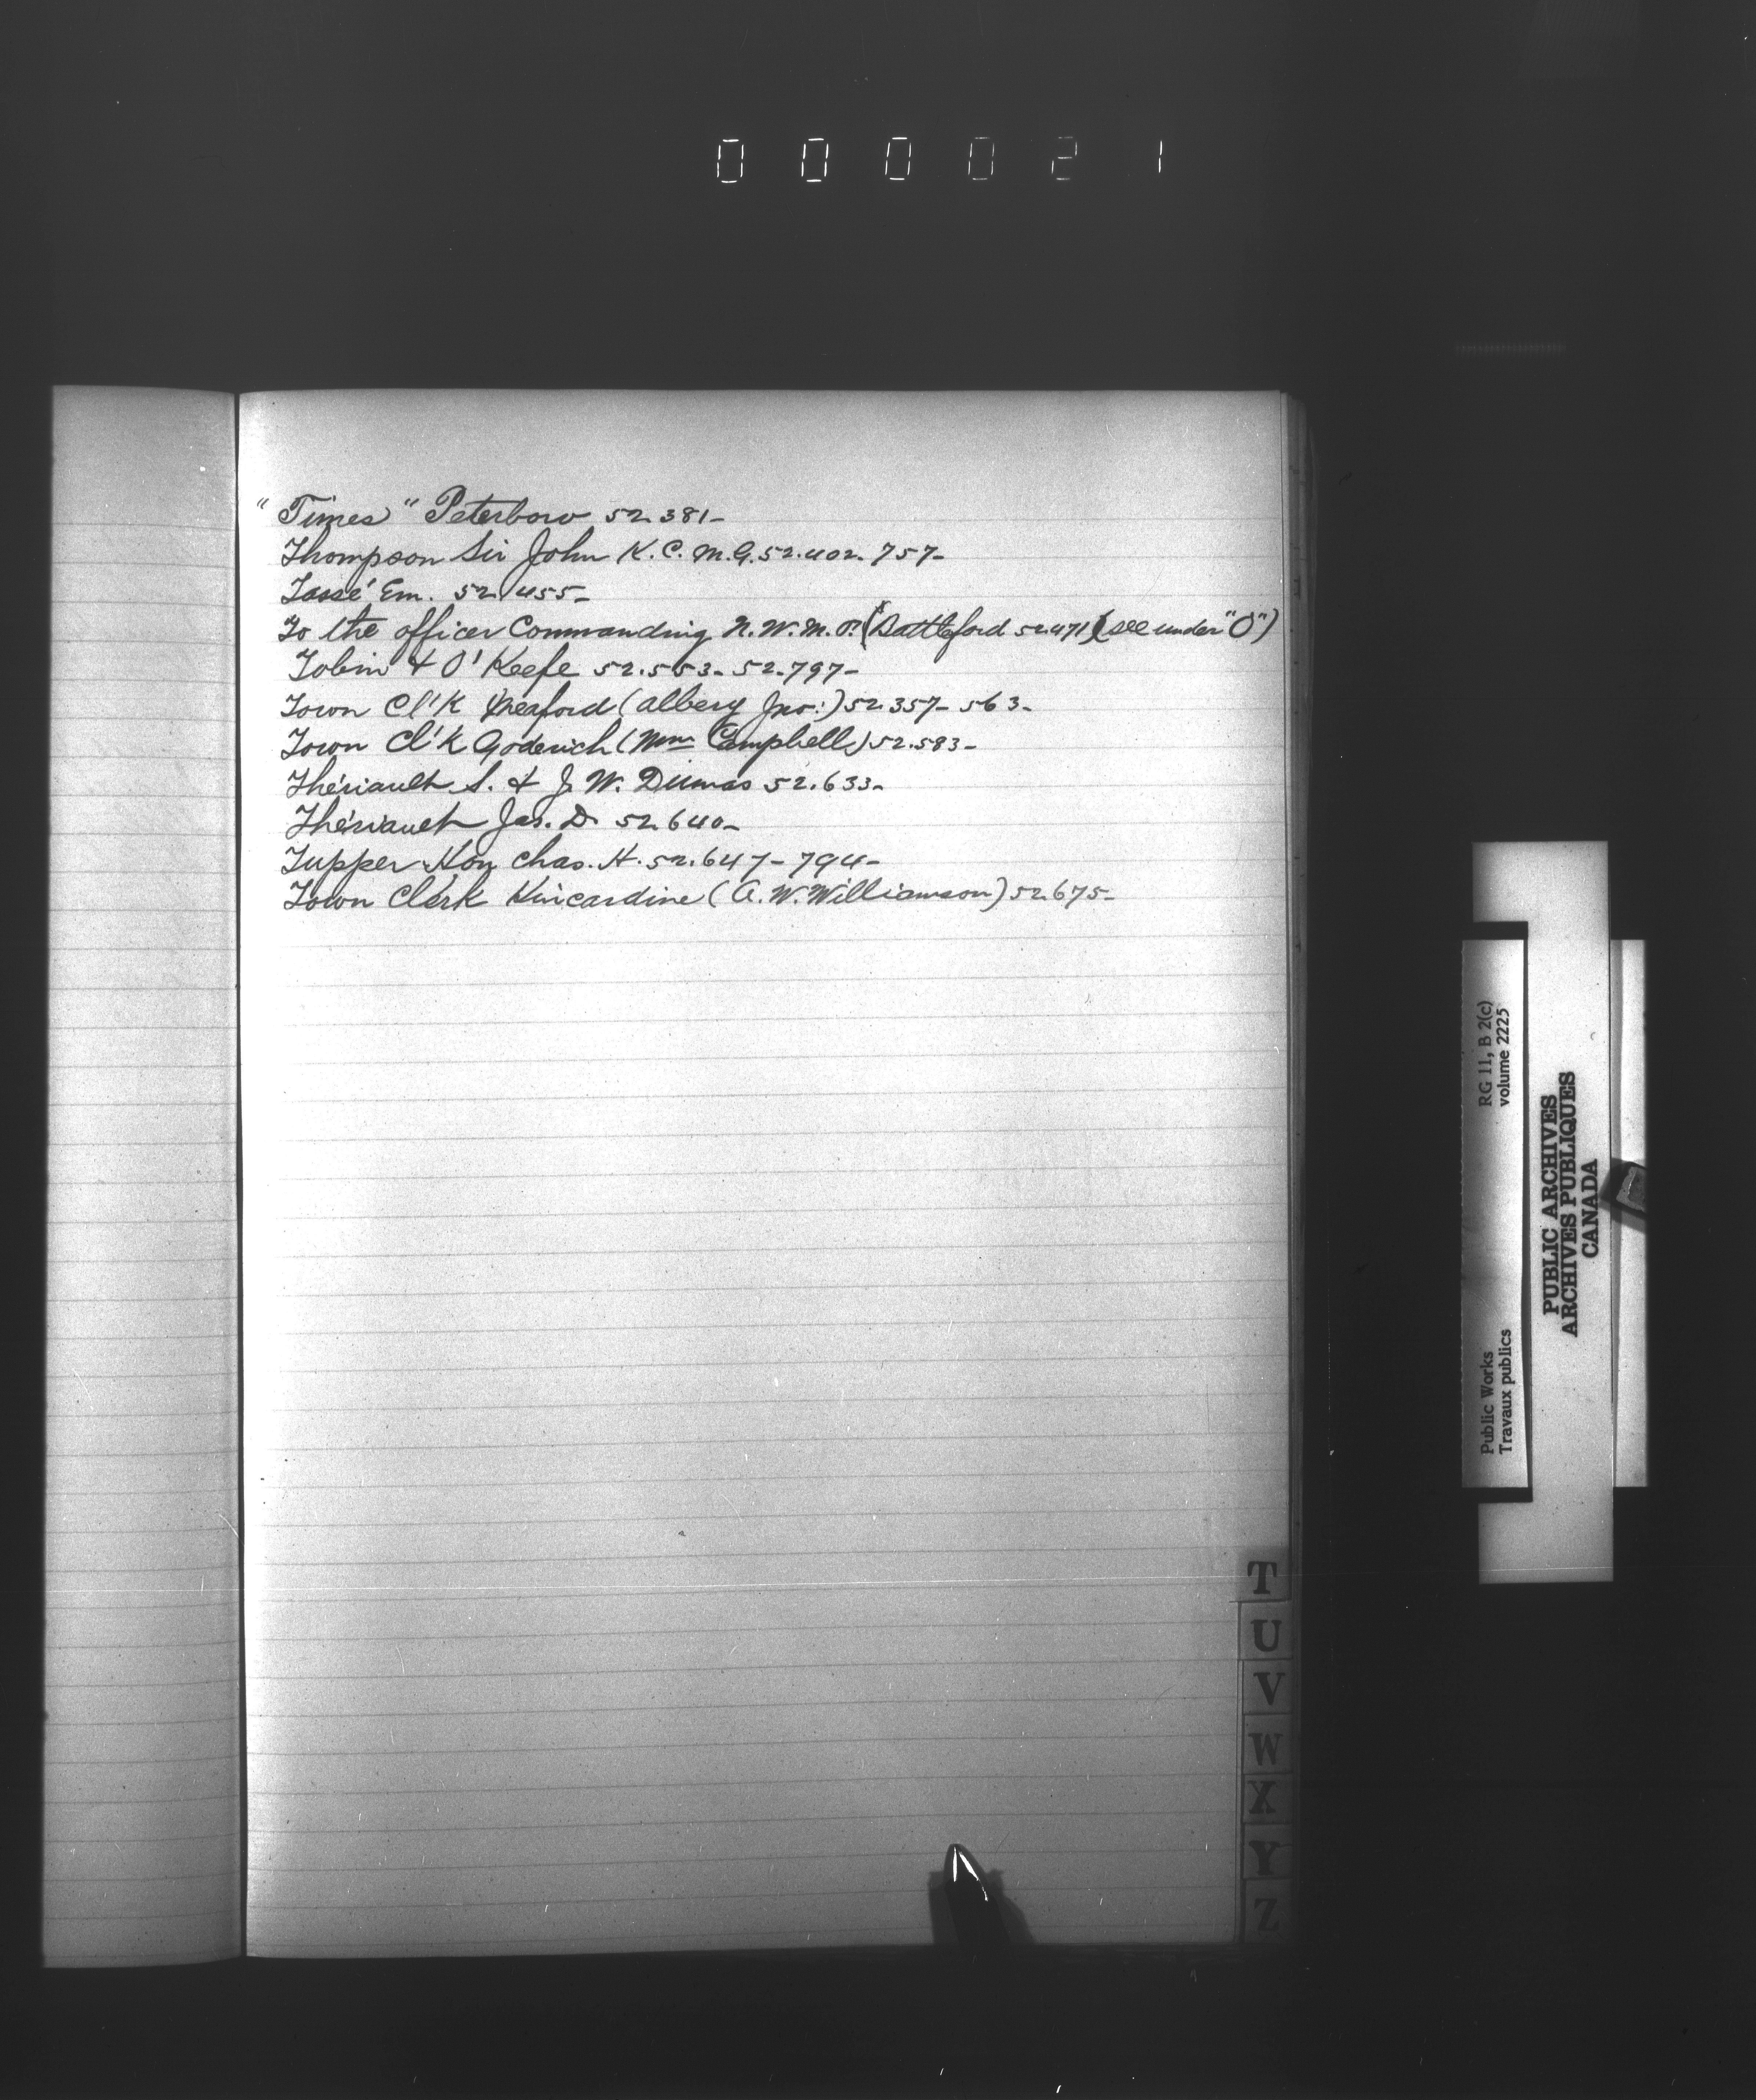 000021
"Times" Peterboro 52.381-
Thompson Sir John K.C.M.G. 52.402. 757-
Tassé Em. 52.455-
To the officer Commanding N.W.M.P. (Battleford 52.471) (see under "O")
Tobin & O'Keefe 52.553. 52.797-
Town Cl'k Meaford (Albery Jno:) 52.357- 563-
Town Cl'k Goderich (Wm Campbell) 52.583-
Thériault S. & J. W. Dumas 52.633-
Thériault Jas. D. 52.640-
Tupper Hon Chas. H. 52.647- 794-
Town Clerk Kincardine (A. W. Williamson) 52.675-
T
U
V
W
X
Y
Z
Public Works RG 11, B 2(c)
Travaux publics volume 2225
PUBLIC ARCHIVES
ARCHIVES PUBLIQUES
CANADA